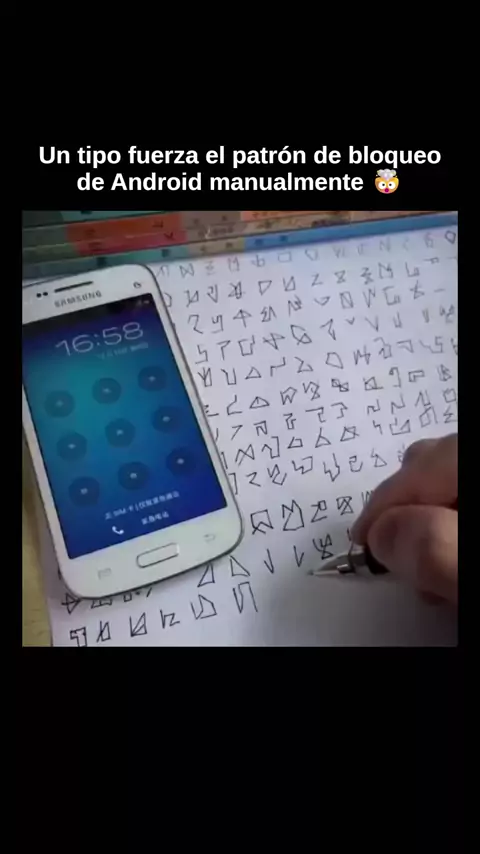 Un tipo fuerza el patrón de bloqueo
de Android manualmente 🤯
SAMSUNG
16:58
紧急电话